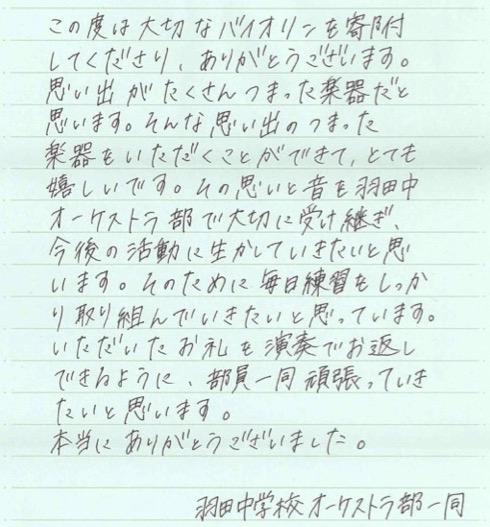 この度は大切なバイオリンを寄附
してくださり、ありがとうございます。
思い出がたくさんつまった楽器だと
思います。そんな思い出のつまった
楽器をいただくことができて、とても
嬉しいです。その思いと音を羽田中
オーケストラ部で大切に受け継ぎ、
今後の活動に生かしていきたいと思
います。そのために毎日練習をしっか
り取り組んでいきたいと思っています。
いただいたお礼を演奏でお返し
できるように、部員一同頑張っていき
たいと思います。
本当にありがとうございました。
羽田中学校オーケストラ部一同